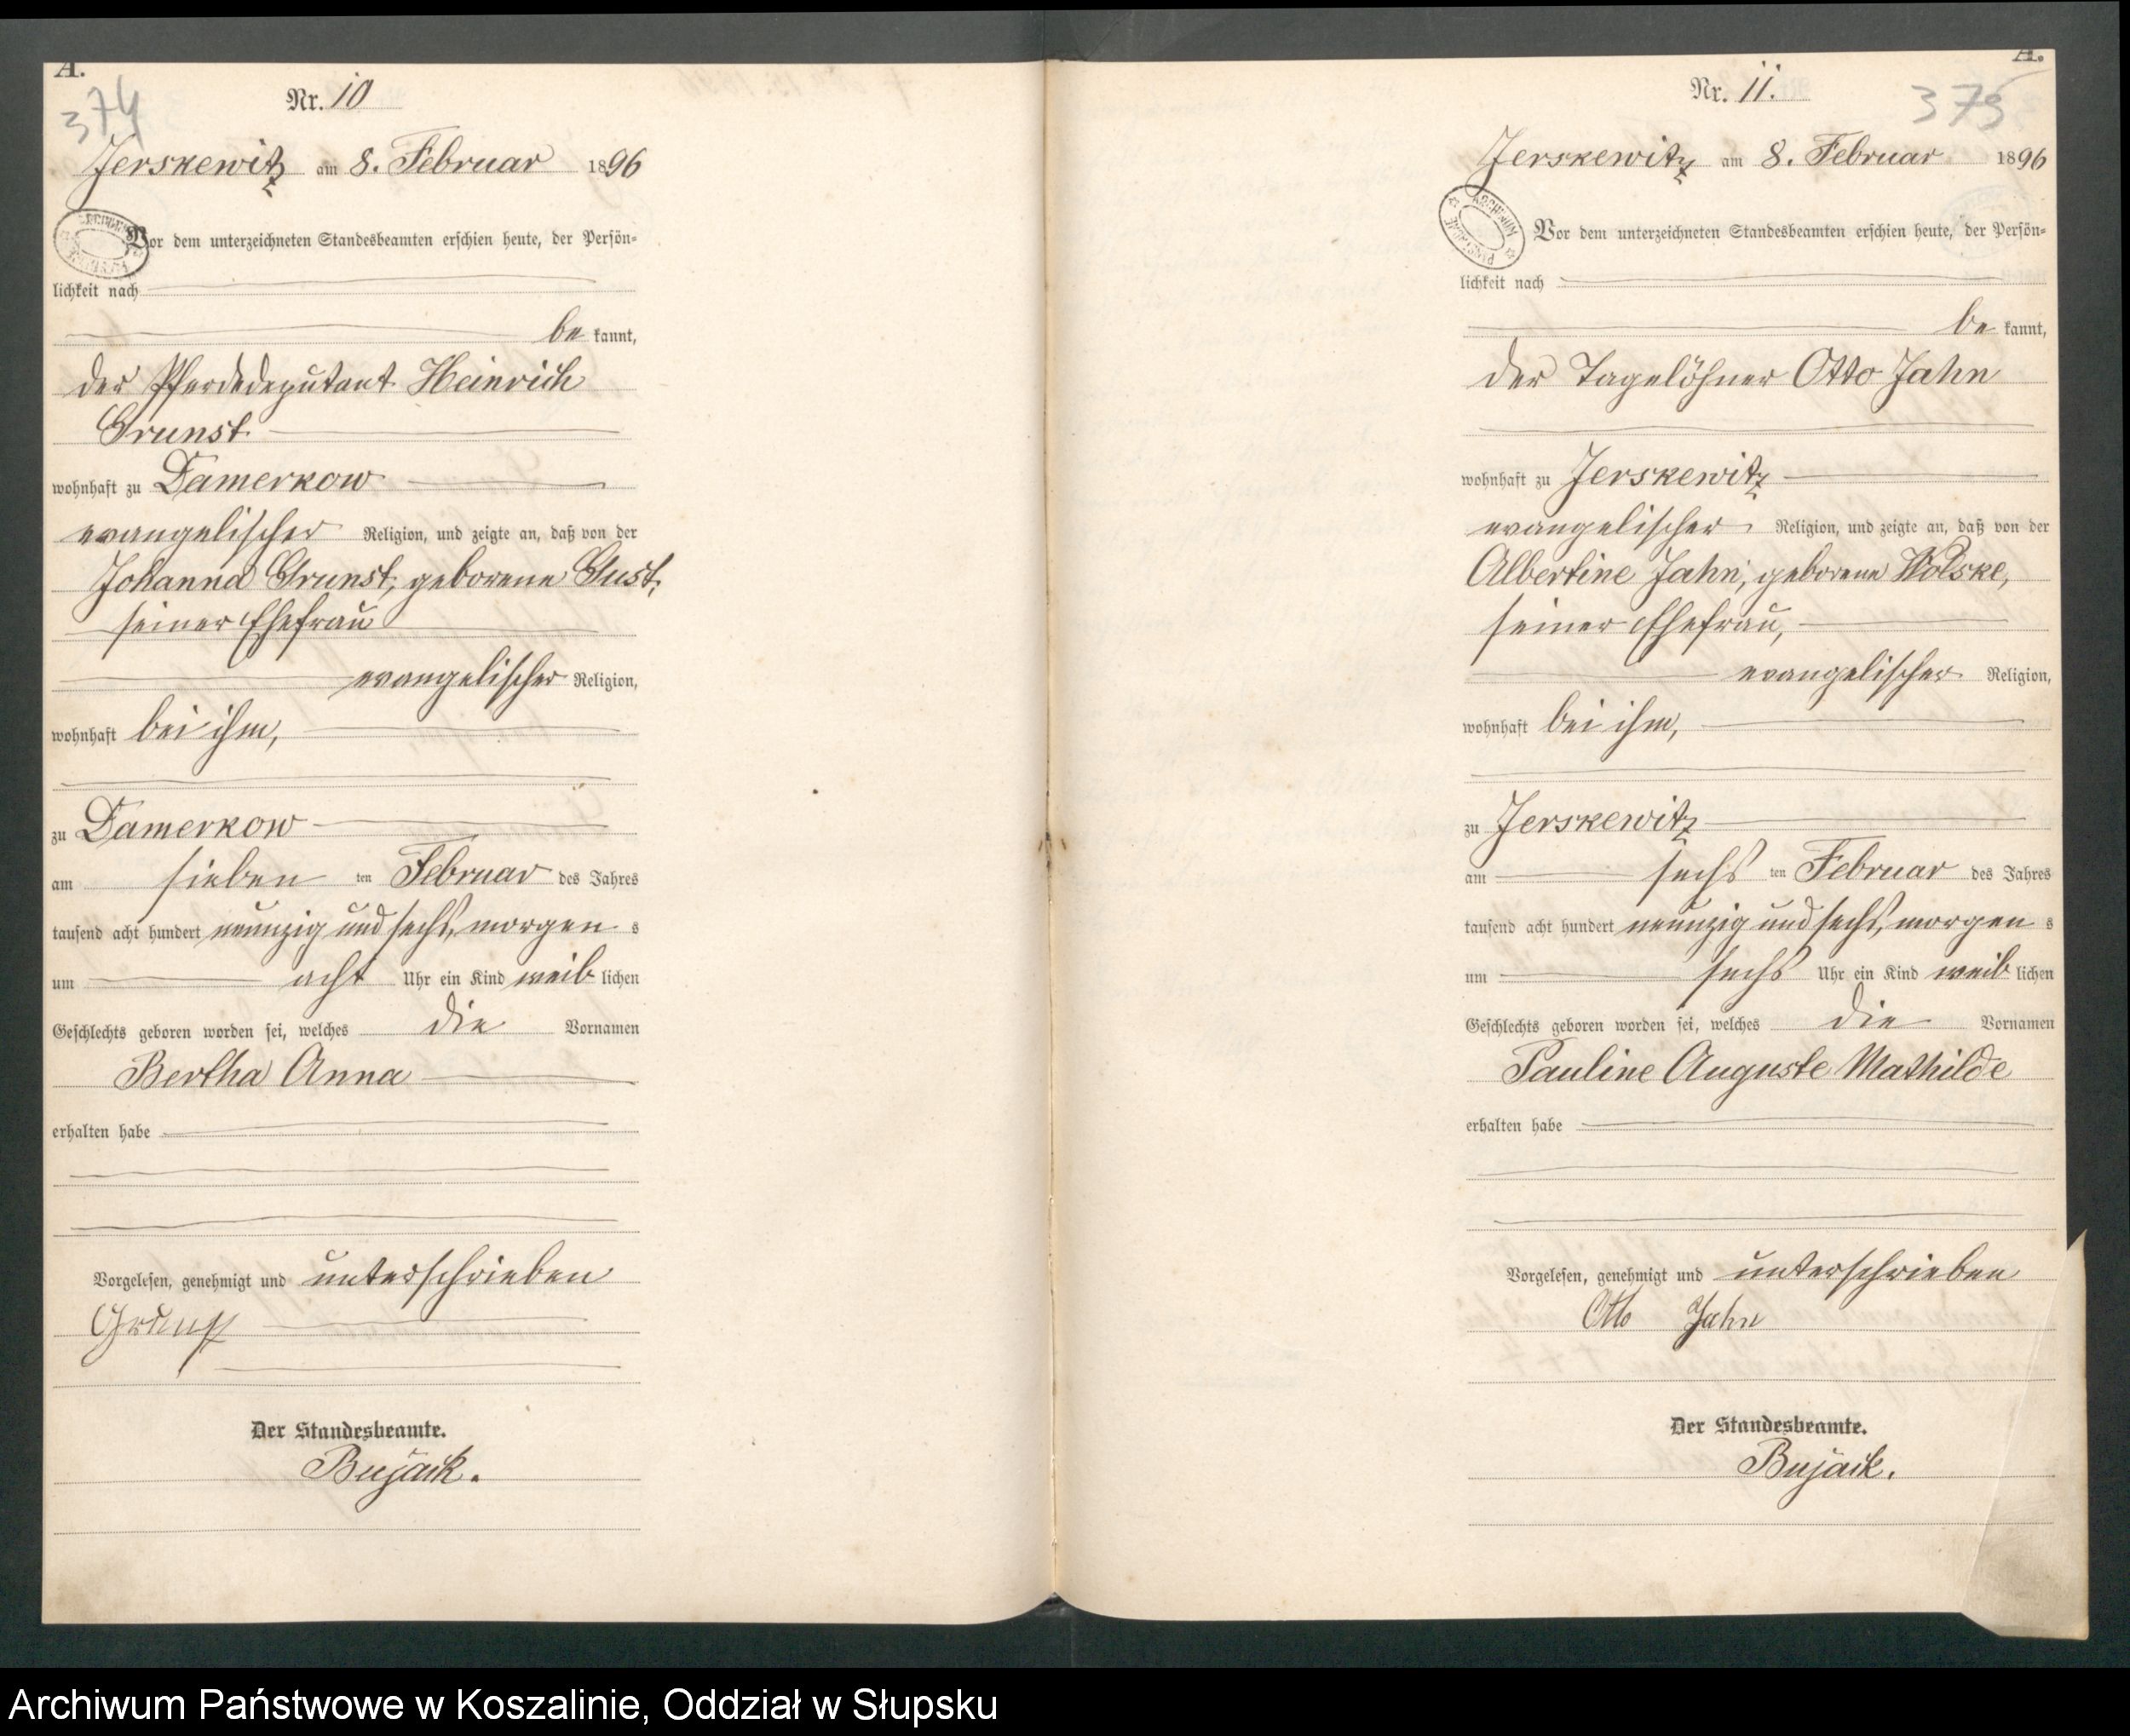 A.
374
Nr. 10
Jerskewitz am 8. Februar 1896
Vor dem unterzeichneten Standesbeamten erschien heute, der Persön-
lichkeit nach
be kannt,
der Pferdedeputant Heinrich
Grunst
wohnhaft zu Damerkow
evangelischer Religion, und zeigte an, daß von der
Johanna Grunst, geborene Gust,
seiner Ehefrau
evangelischer Religion,
wohnhaft bei ihm,
zu Damerkow
am sieben ten Februar des Jahres
tausend acht hundert neunzig und sechs, morgen s
um acht Uhr ein Kind weib lichen
Geschlechts geboren worden sei, welches die Vornamen
Bertha Anna
erhalten habe
Vorgelesen, genehmigt und unterschrieben
Grunst
Der Standesbeamte.
Bujack.
A.
Nr. 11.
375
Jerskewitz am 8. Februar 1896
ARCHIWUM PAŃSTWOWE
Vor dem unterzeichneten Standesbeamten erschien heute, der Persön-
lichkeit nach
be kannt,
der Tagelöhner Otto Jahn
wohnhaft zu Jerskewitz
evangelischer Religion, und zeigte an, daß von der
Albertine Jahn, geborene Wolske,
seiner Ehefrau,
evangelischer Religion,
wohnhaft bei ihm,
zu Jerskewitz
am sechs ten Februar des Jahres
tausend acht hundert neunzig und sechs, morgen s
um sechs Uhr ein Kind weib lichen
Geschlechts geboren worden sei, welches die Vornamen
Pauline Auguste Mathilde
erhalten habe
Vorgelesen, genehmigt und unterschrieben
Otto Jahn
Der Standesbeamte.
Bujack.
Archiwum Państwowe w Koszalinie, Oddział w Słupsku